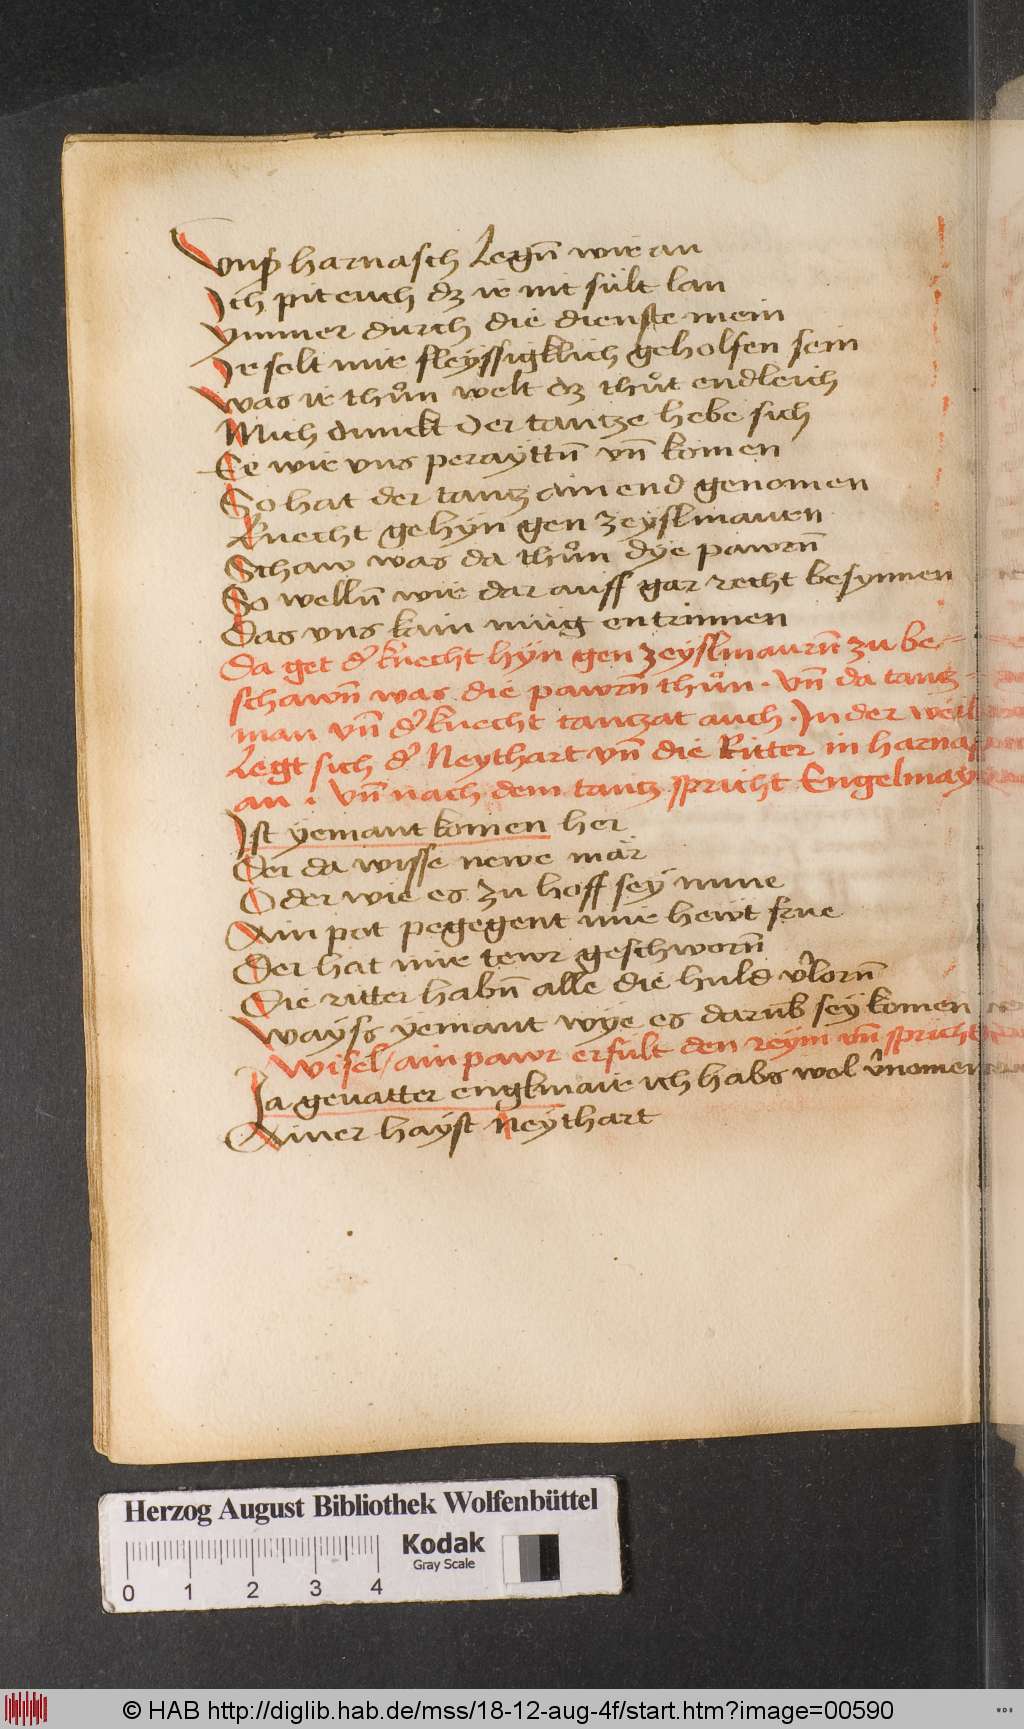 Vnſs harnasch Legn̄ wir an
Ich pit euch dz ir nit sült lan
ymmer durch die dienste mein
Ir solt mir fleyssigklich geholfen sein
was ir thůn welt dz thůt endleich
Mich dunckt der tantze hebe sich
Ee wir vns perayttn̄ vn̄ komen
So hat der tantz ain end genomen
Knecht gehyn gen zeyslmauren
Schaw was da thůn dye pawrn̄
So welln̄ wir dar auff gar recht besynnen
Das vns kain müg entrinnen
Da get d' knecht hyn gen zeyslmaurn̄ zu be-
schawn̄ was die pawrn̄ thůn . Vn̄ da tantz
man vn̄ d' knecht tantzat auch . In der weil
Legt sich d' Neythart vn̄ die Ritter in harnasch
an . Vn̄ nach dem tantz spricht Engelmayr
Ist yemant komen her
Der da wisse newe mär
Oder wie es zu hoff sey nune
Ain pot pegegent mir hewt frue
Der hat mir tewr geschworn̄
Die ritter habn̄ alle die huld v'lorn̄
Wayss yemant wye es darūb sey komen
Wisel / ain pawr erfult den reym vn̄ spricht
Ja geuatter englmair ich habs wol v'nomen
Ainer hayst Neythart
Herzog August Bibliothek Wolfenbüttel
Kodak
Gray Scale
0 1 2 3 4
© HAB http://diglib.hab.de/mss/18-12-aug-4f/start.htm?image=00590